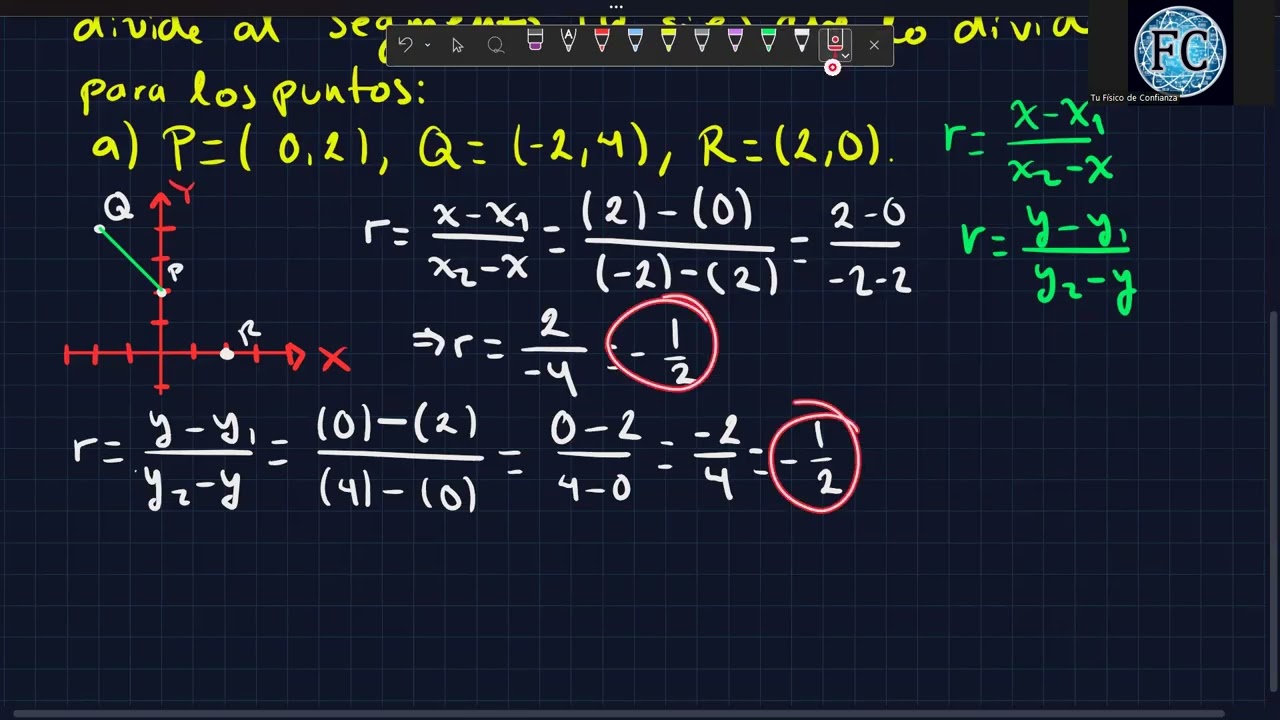 divide al segmento
divid
para los puntos:
a) P=( 0,2), Q= (-2,4), R=(2,0).
FC
Tu Físico de Confianza
r= x-x₁ / x₂-x
r= y-y₁ / y₂-y
Q
Y
P
R
X
r= x-x₁ / x₂-x = (2)-(0) / (-2)-(2) = 2-0 / -2-2
⇒r= 2 / -4 = - 1/2
r= y-y₁ / y₂-y = (0)-(2) / (4)-(0) = 0-2 / 4-0 = -2/4 = - 1/2